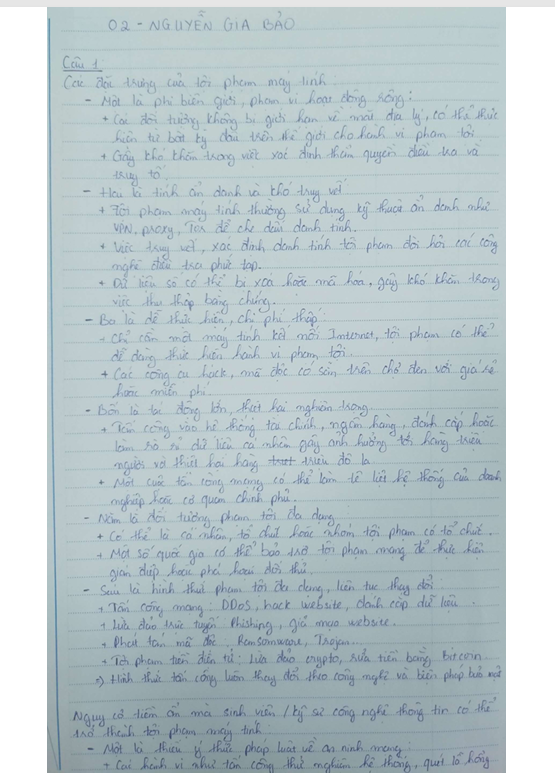 02 - NGUYỄN GIA BẢO
Câu 1:
Các đặc trưng của tội phạm máy tính:
- Một là phi biên giới, phạm vi hoạt động rộng:
+ Các đối tượng không bị giới hạn về mặt địa lý, có thể thực
hiện từ bất kỳ đâu trên thế giới cho hành vi phạm tội
+ Gây khó khăn trong việc xác định thẩm quyền điều tra và
truy tố.
- Hai là tính ẩn danh và khó truy vết
+ Tội phạm máy tính thường sử dụng kỹ thuật ẩn danh như
VPN, proxy, Tor để che dấu danh tính.
+ Việc truy vết, xác định danh tính tội phạm đòi hỏi các công
nghệ điều tra phức tạp.
+ Dữ liệu số có thể bị xoá hoặc mã hóa, gây khó khăn trong
việc thu thập bằng chứng.
- Ba là dễ thực hiện, chi phí thấp:
+ Chỉ cần một máy tính kết nối Internet, tội phạm có thể
dễ dàng thực hiện hành vi phạm tội.
+ Các công cụ hack, mã độc có sẵn trên chợ đen với giá rẻ
hoặc miễn phí.
- Bốn là tác động lớn, thiệt hại nghiêm trọng
+ Tấn công vào hệ thống tài chính, ngân hàng, đánh cắp hoặc
làm rò rỉ dữ liệu cá nhân gây ảnh hưởng tới hàng triệu
người và thiệt hại hàng triệu đô la
+ Một cuộc tấn công mạng có thể làm tê liệt hệ thống của doanh
nghiệp hoặc cơ quan chính phủ.
- Năm là đối tượng phạm tội đa dạng
+ Có thể là cá nhân, tổ chức hoặc nhóm tội phạm có tổ chức.
+ Một số quốc gia có thể bảo trợ tội phạm mạng để thực hiện
gián điệp hoặc phá hoại đối thủ.
- Sáu là hình thức phạm tội đa dạng, liên tục thay đổi
+ Tấn công mạng: DDoS, hack website, đánh cắp dữ liệu.
+ Lừa đảo trực tuyến: Phishing, giả mạo website.
+ Phát tán mã độc: Ransomware, Trojan...
+ Tội phạm tiền điện tử: Lừa đảo crypto, rửa tiền bằng Bitcoin
=> Hình thức tấn công luôn thay đổi theo công nghệ và biện pháp bảo mật
Nguy cơ tiềm ẩn mà sinh viên / kỹ sư công nghệ thông tin có thể
trở thành tội phạm máy tính:
- Một là thiếu ý thức pháp luật về an ninh mạng:
+ Các hành vi như tấn công thử nghiệm hệ thống, quét lỗ hổng